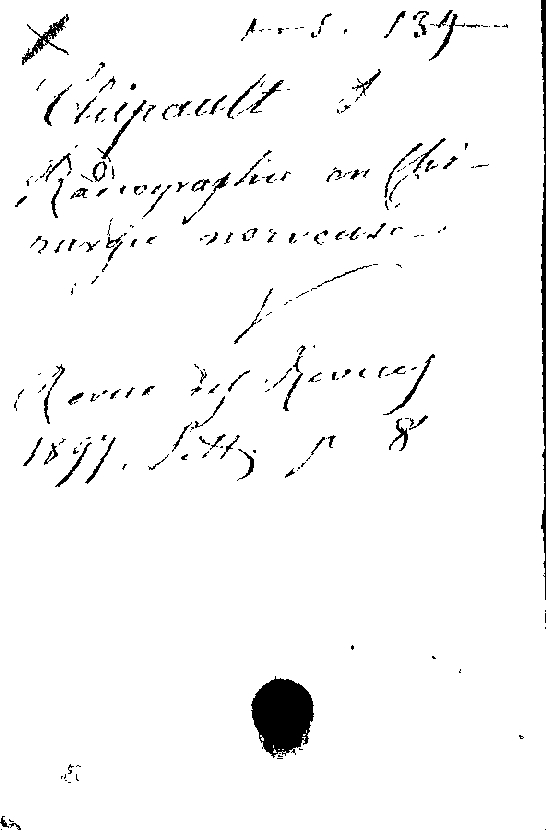 S. 139
Chipault A
Radiographie en Chi-
rurgie nerveuse
Revue des Revues
1897. Sett. p 8